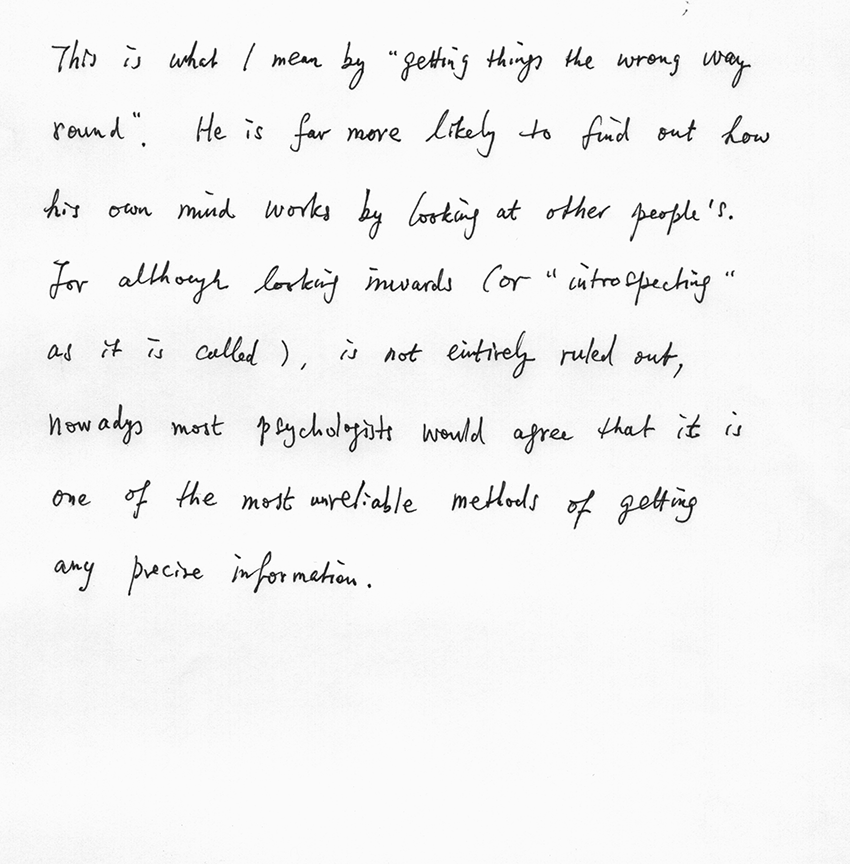 This is what I mean by "getting things the wrong way
round". He is far more likely to find out how
his own mind works by looking at other people's.
For although looking inwards (or "introspecting"
as it is called), is not entirely ruled out,
nowadys most psychologists would agree that it is
one of the most unreliable methods of getting
any precise information.